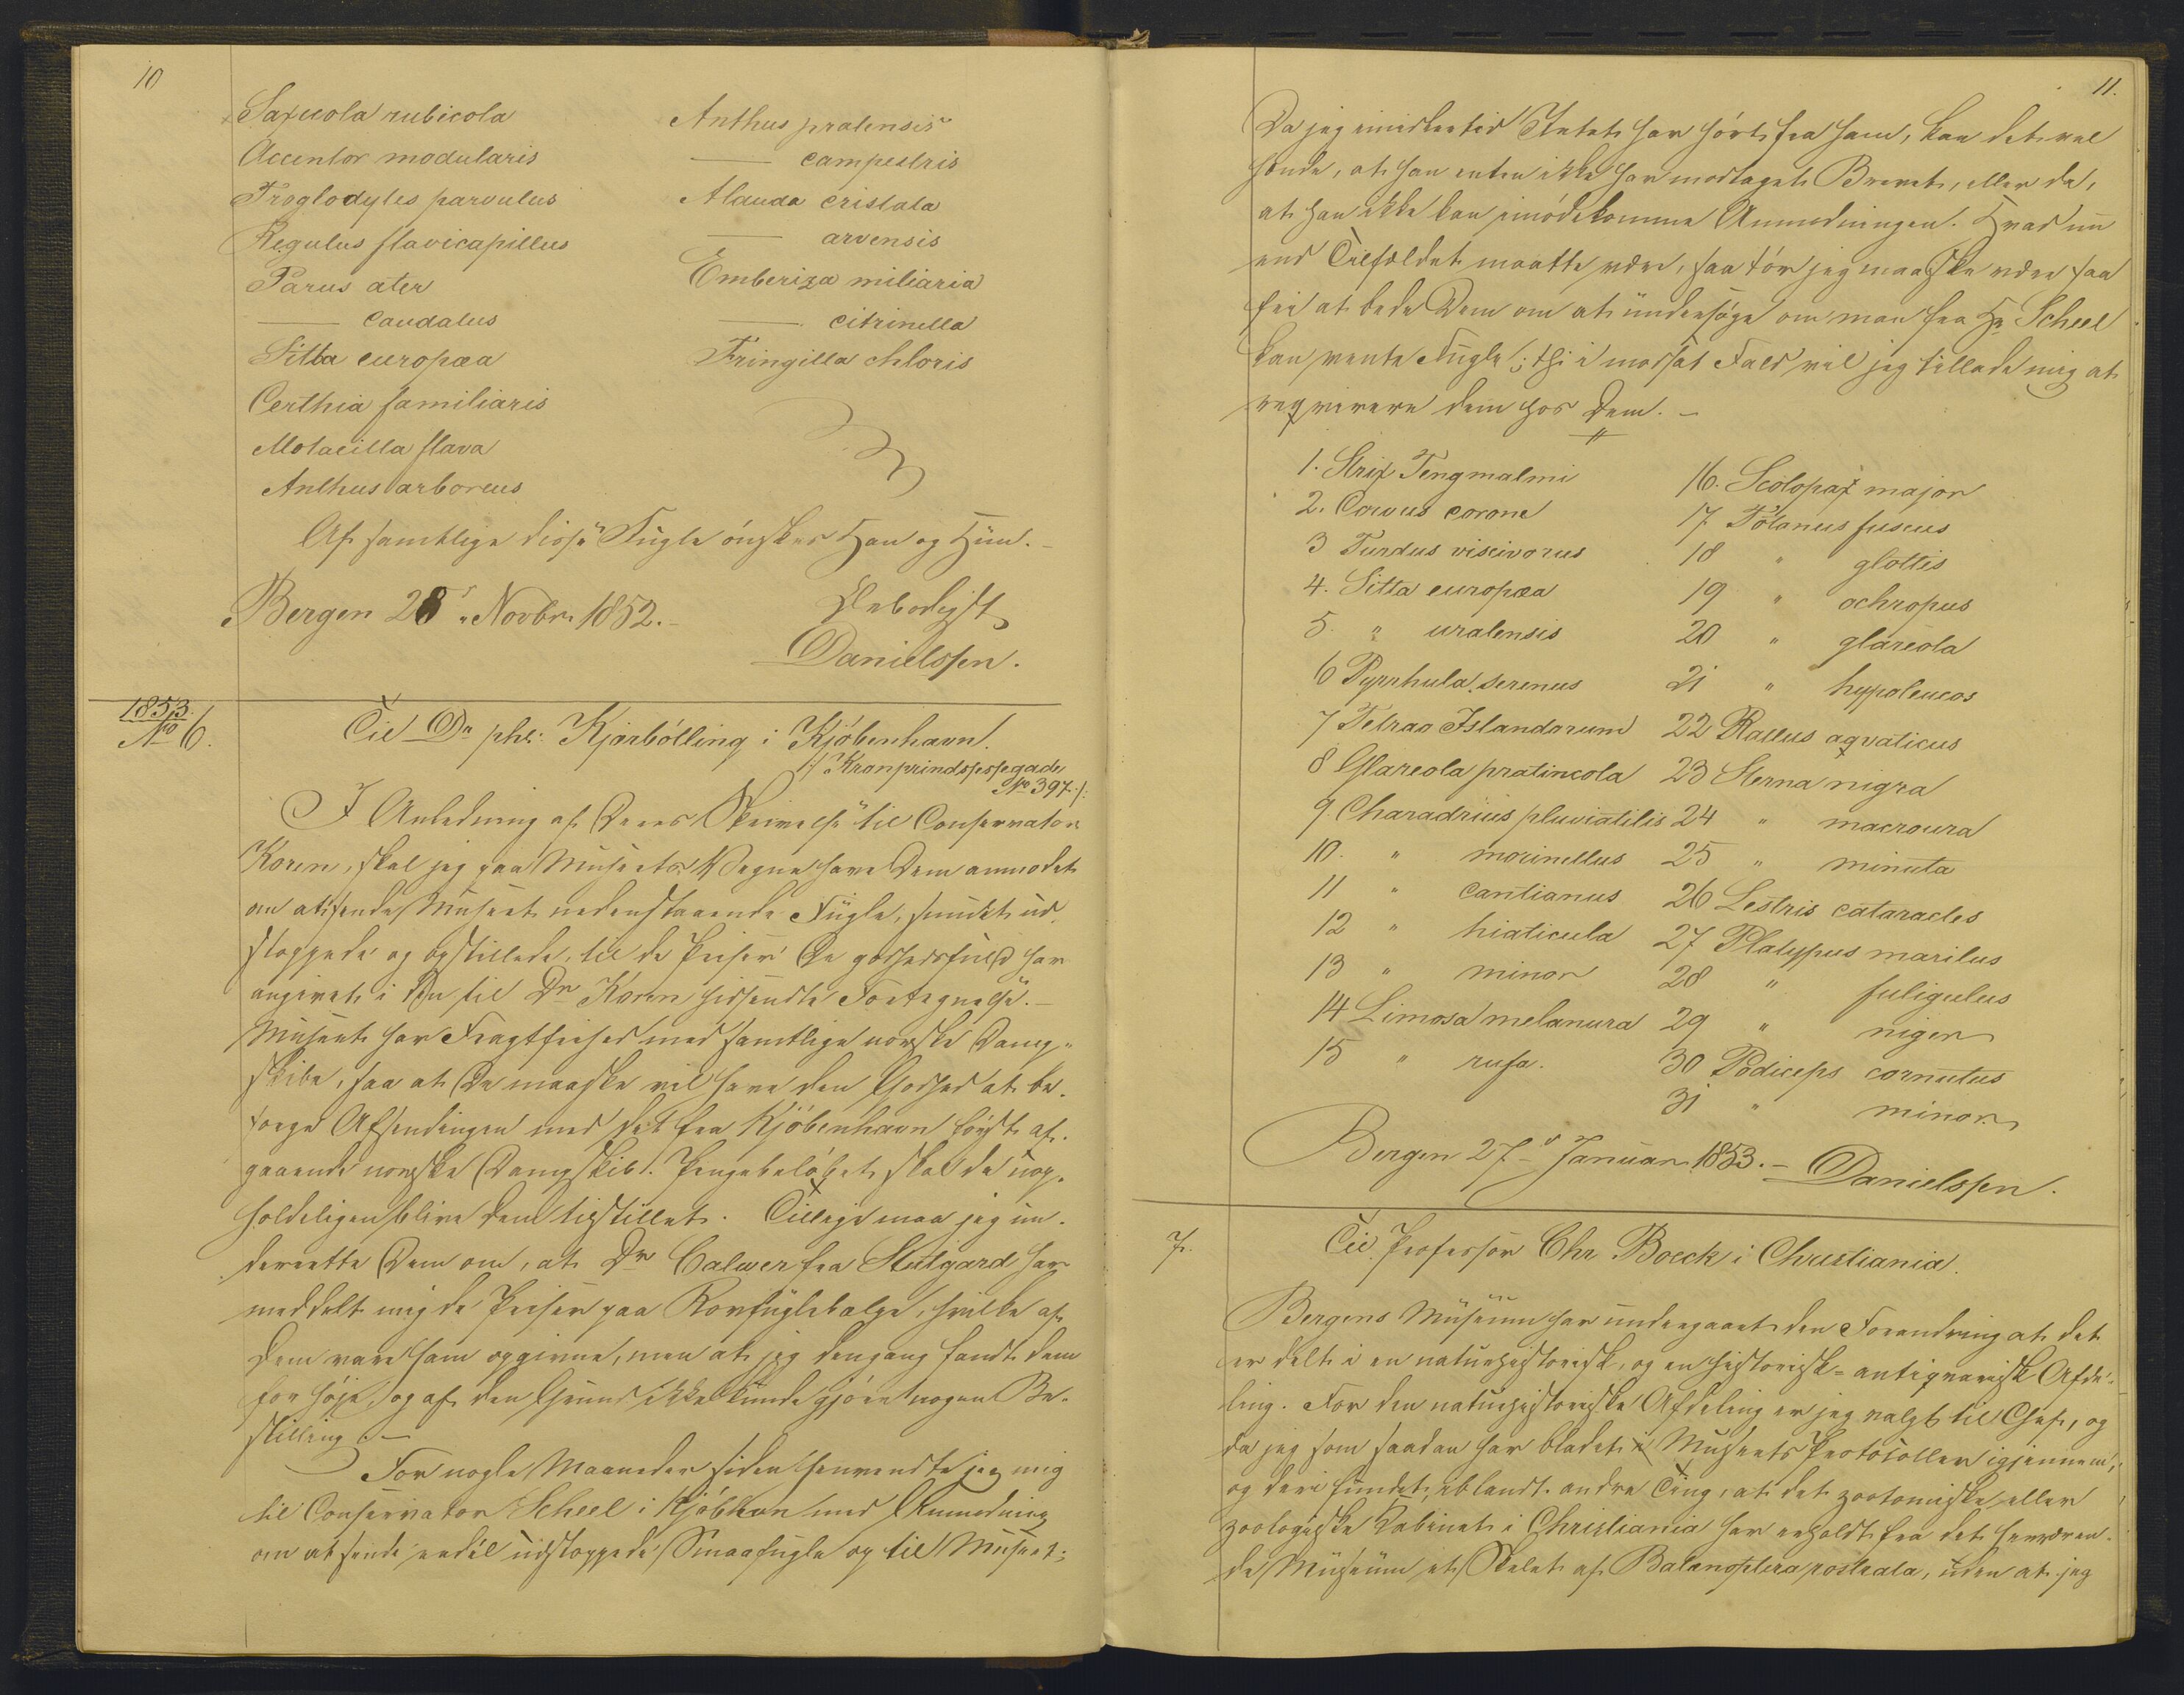 10
Saxicola rubicola
Accentor modularis
Troglodytes parvulus
Regulus flavicapillus
Parus ater
—— caudatus
Sitta europæa
Certhia familiaris
Motacilla flava
Anthus arboreus
Anthus pratensis
—— campestris
Alauda cristata
—— arvensis
Emberiza miliaria
—— citrinella
Fringilla chloris
Af samtlige disse Fugle ónskes Han og Hun. –
Bergen 28 Novbr 1852. –
Ærbodigst
Danielssen.
1853.
No 6.
Til Dr phil: Kjærbólling i Kjóbenhavn.
/: Kronprindsessegade
No 397 :/
I Anledning af Deres Skrivelse til Conservator
Koren, skal jeg paa Museets Vegne have Dem anmodet
om at sende Museet nedenstaaende Fugle, smukt ud-
stoppede og opstillede, til de Priser De godhedsfuld har
angivet i den til Dr Koren hidsendte Fortegnelse. –
Museet har Fragtfrihed med samtlige norske Damp-
skibe, saa at De maaske vil have den Godhed at be-
sorge Afsendingen med det fra Kjóbenhavn fórst af-
gaaende norske Dampskib. Pengebelóbet skal da uop-
holdeligen blive Dem tilstillet. Tillige maa jeg un-
derrette Dem om, at Dr Calwer fra Stutgard har
meddelt mig de Priser paa Rovfuglebalge, hvilke af
Dem vare ham opgivne, men at jeg dengang fandt dem
for hóje, og af den Grund ikke kunde gjóre nogen Be-
stilling. –
For nogle Maaneder siden henvendte jeg mig
til Conservator Scheel i Kjóbhavn med Anmodning
om at sende endel udstoppede Smaafugle op til Museet;
11.
Da jeg imidlertid Intet har hórt fra ham, kan det vel
hænde, at han enten ikke har modtaget Brevet, eller da,
at han ikke kan imódekomme Anmodningen. Hvad nu
end Tilfældet maatte være, saa tór jeg maaske være saa
fri at bede Dem om at undersóge om man fra Hr Scheel
kan vente Fugle; thi i modsat Fald vil jeg tillade mig at
reqvirere dem hos Dem. –
1. Strix Tengmalmi
2. Corvus corone
3 Turdus viscivorus
4. Sitta europæa
5. " uralensis
6 Pyrrhula serenus
7 Tetrao Islandorum
8 Glareola pratincola
9. Charadrius pluviatilis
10. " morinellus
11 " cantianus
12 " hiaticula
13 " minor
14 Limosa melanura
15 " rufa.
16. Scolopax major
17. Totanus fuscus
18 " glottis
19 " ochropus
20 " glareola
21 " hypoleucos
22 Rallus aqvaticus
23 Sterna nigra
24 " macroura
25 " minuta
26 Lestris cataractes
27 Platypus marilus
28 " fuligulus
29 " niger
30 Podiceps cornutus
31 " minor
Bergen 27 Januar 1853. – Danielssen.
7.
Til Professor Chr Boeck i Christiania.
Bergens Museum har undergaaet den Forandring at det
er delt i en naturhistorisk, og en historisk-antiqvarisk Afde-
ling. For den naturhistoriske Afdeling er jeg valgt til Chef, og
da jeg som saadan har bladet i Museets Protocoller igjennem,
og deri fundet, iblandt andre Ting, at det zootomiske eller
zoologiske Kabinet i Christiania har erholdt fra det herværen-
de Museum et Skelet af Balænoptera rostrata, uden at jeg